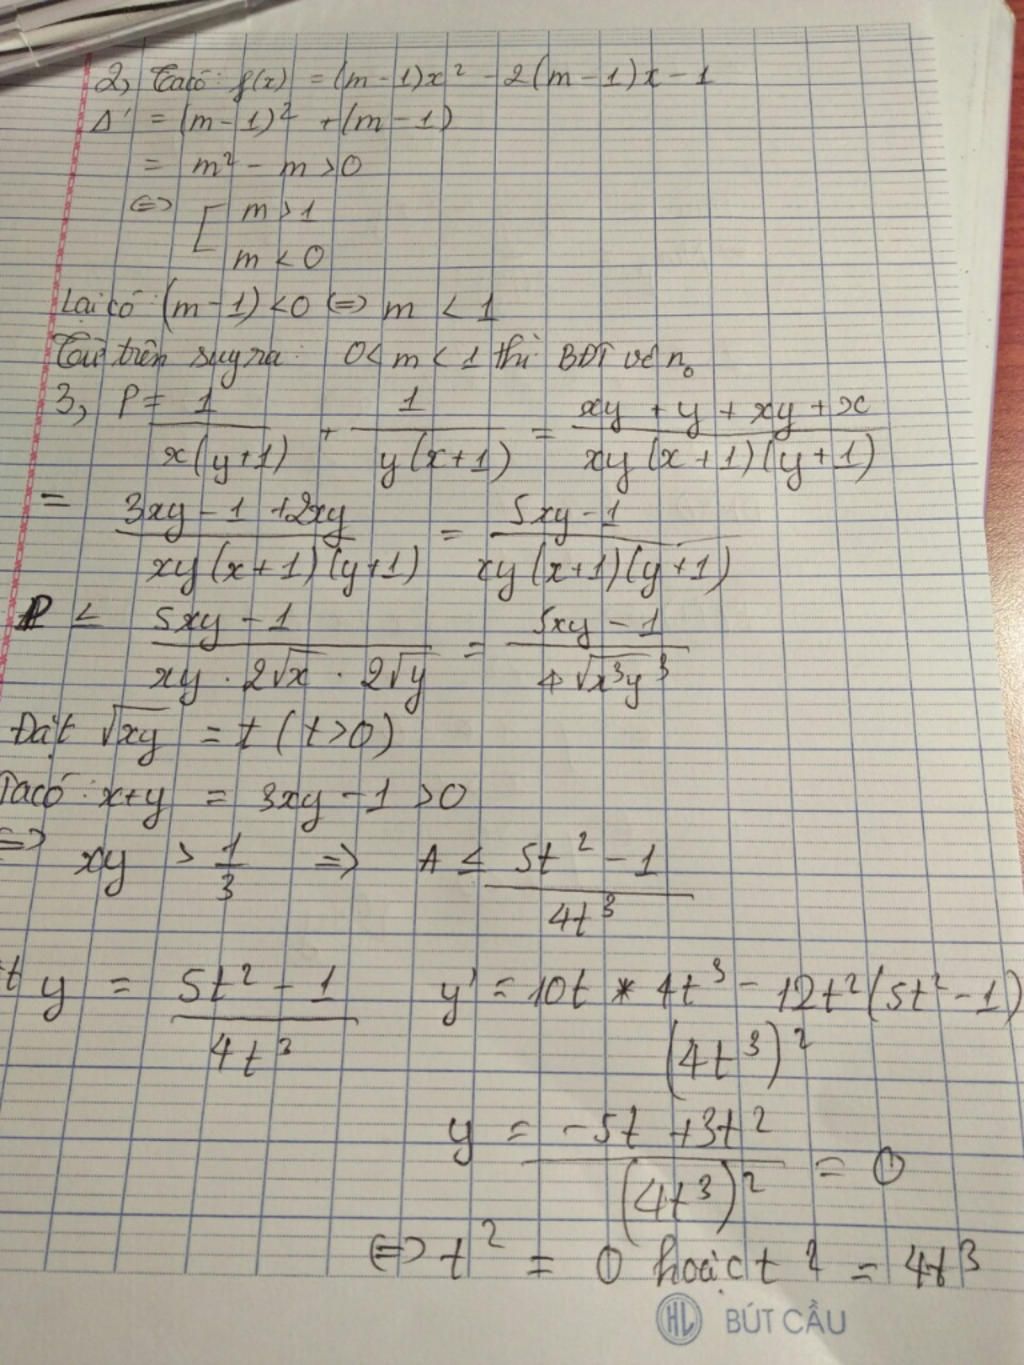 2, Ta có: f(x) = (m-1)x² - 2(m-1)x - 1
Δ' = (m-1)² + (m-1)
= m² - m > 0
⇔ [ m > 1
m < 0
Lại có: (m-1) < 0 ⇔ m < 1
Từ trên suy ra: 0 < m < 1 thì BĐT vô n₀
3, P = 1/(x(y+1)) + 1/(y(x+1)) = (xy + y + xy + x)/(xy(x+1)(y+1))
= (3xy - 1 + 2xy)/(xy(x+1)(y+1)) = (5xy - 1)/(xy(x+1)(y+1))
P ≤ (5xy - 1)/(xy . 2√x . 2√y) = (5xy - 1)/(4√x³y³)
Đặt √xy = t (t>0)
Ta có: x+y = 3xy - 1 > 0
=> xy > 1/3 => A ≤ (5t² - 1)/(4t³)
y = (5t² - 1)/(4t³) y' = (10t * 4t³ - 12t²(5t² - 1))/(4t³)²
y = (-5t + 3t²)/(4t³)² = 0
⇔ t² = 0 hoặc t² = 4t³
HL BÚT CẦU